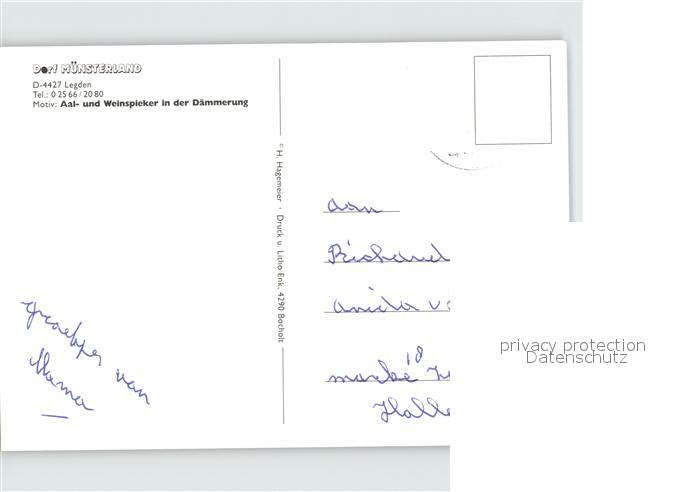 Dorf MÜNSTERLAND
D-4427 Legden
Tel.: 0 25 66 / 20 80
Motiv: Aal- und Weinspieker in der Dämmerung
© H. Hagemeier · Druck u. Litho Enk, 4290 Bocholt
aan
Richard
anita v
18
Halle
van
Mama
privacy protection
Datenschutz